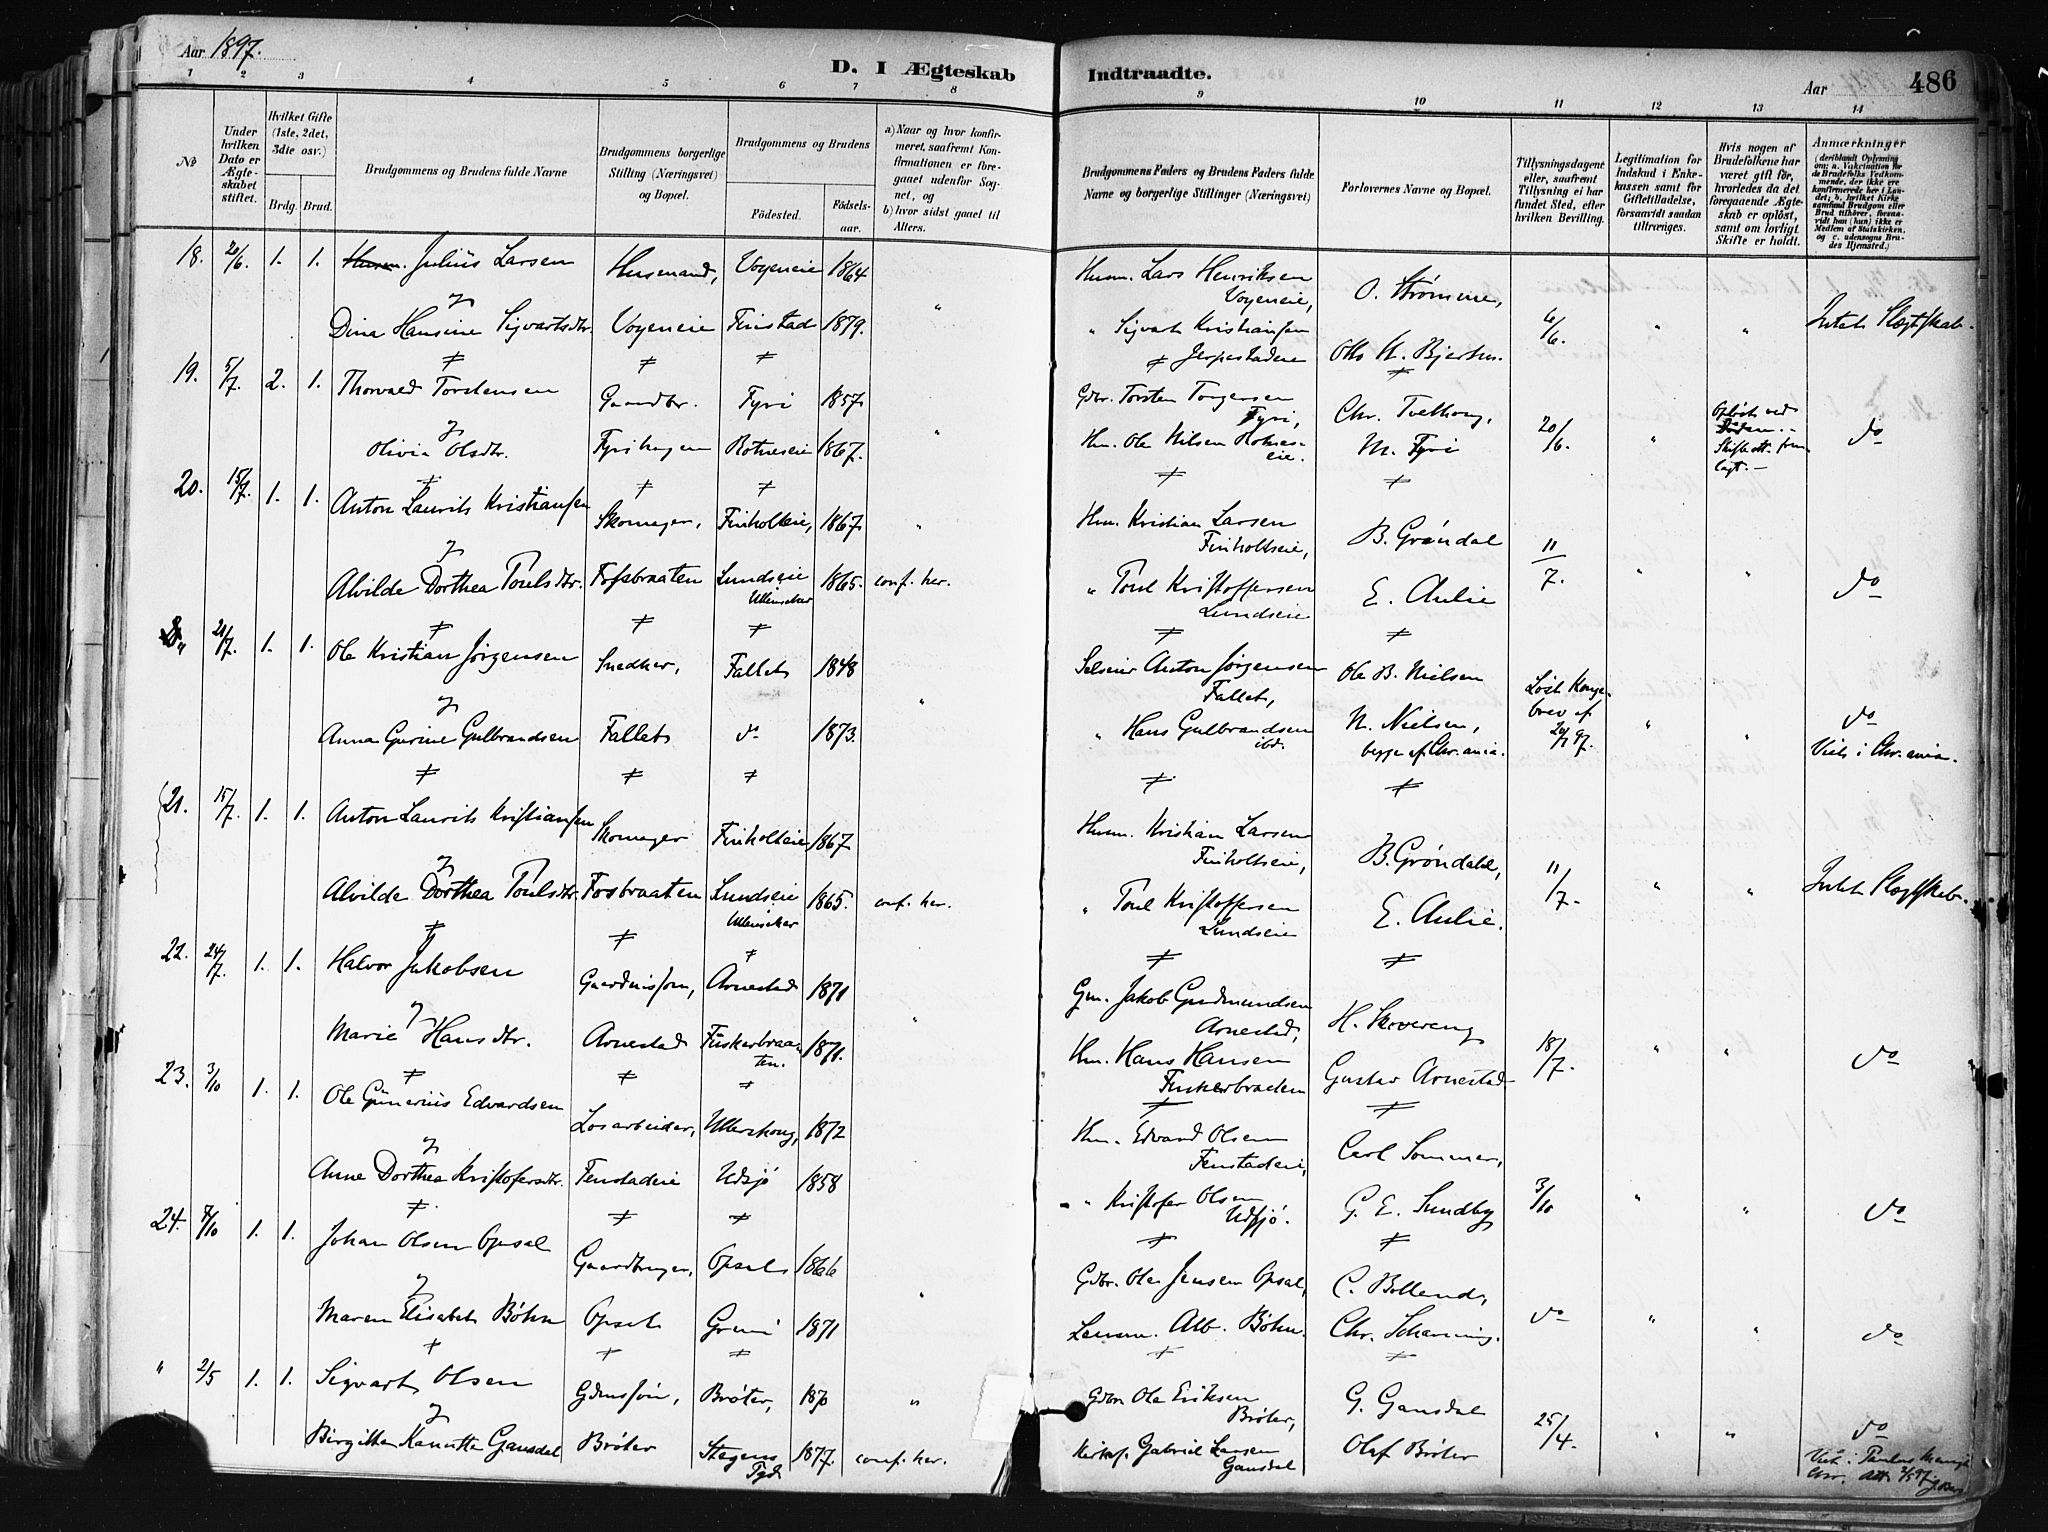 Aar 1897.
D. I Ægteskab
Indtraadte.
Aar
486
1 2 3 4 5 6 7 8 9 10 11 12 13 14
No
Under hvilken Dato er Ægteskabet stiftet.
Hvilket Gifte (1ste, 2det, 3die osv.)
Brdg. Brud.
Brudgommens og Brudens fulde Navne
Brudgommens borgerlige Stilling (Næringsvei) og Bopæl.
Brudgommens og Brudens
Födested.
Födselsaar.
a) Naar og hvor konfirmeret, saafremt Konfirmationen er foregaaet udenfor Sognet, og
b) hvor sidst gaaet til Alters.
Brudgommens Faders og Brudens Faders fulde Navne og borgerlige Stillinger (Næringsvei)
Forlovernes Navne og Bopæl.
Tillysningsdagene eller, saafremt Tillysning ei har fundet Sted, efter hvilken Bevilling.
Legitimation for Indskud i Enkekassen samt for Giftetilladelse, forsaavidt saadan tiltrænges.
Hvis nogen af Brudefolkene har været gift för, hvorledes da det foregaaende Ægteskab er oplöst, samt om lovligt Skifte er holdt.
Anmærkninger
(deriblandt Oplysning om: a. Vakcination for de Brudefolks Vedkommende, der ikke ere konfirmerede her i Landet; b. hvilket Kirkesamfund Brudgom eller Brud tilhörer, forsaavidt han (hun) ikke er Medlem af Statskirken, og c. udensogns Brudes Hjemsted.)
18. 20/6. 1. 1. Julius Larsen Husmand, Vogeneie 1864 Husm. Lars Henriksen Vogeneie, O. Strømme,
&
Dina Hansine Sigvartsdtr. Vogeneie Finstad 1879. " " Sigvart Kristiansen Jerpestadeie Otto H. Bjerke. 6/6. " " Intet Slægtskab.
19. 5/7. 2. 1. Thorvald Torstensen Gaardbr. Fyri 1857. Gdbr. Torsten Torgersen Fyri, Chr. Tvethong,
&
Olivia Olsdtr. Fyrihagen Rotneseie 1867. " Hm. Ole Nilsen Rotneseie. M. Fyri 20/6. " Opløst ved Døden. - Skifteatt. fremlagt. - do
20. 15/7. 1. 1. Anton Laurits Kristiansen Skomager, Finholteie, 1867. " Hm. Kristian Larsen Finholtseie, B. Grøndal
&
Alvilde Dorthea Poulsdtr. Fossbraaten Lundseie Ullensaker 1865. conf. her. " Poul Kristoffersen Lundseie E. Aulie 11/7. " " do
21/7. 1. 1. Ole Kristian Jørgensen Snedker, Fallet 1848 Selveier Anton Jørgensen Fallet, Ole B. Nielsen
&
Anna Gurine Gulbrandsen Fallet do 1873. " " Hans Gulbrandsen ibd. N. Nielsen, begge af Chr.ania. Løst Kongebrev af 20/7 97. " " do Viet i Chr.ania.
21. 15/7. 1. 1. Anton Laurits Kristiansen Skomager Finholteie 1867. Husm. Kristian Larsen Finholtseie, B. Grøndahl,
&
Alvilde Dorthea Poulsdtr. Fosbraaten Lundseie Ullensaker 1865. conf. her. " Poul Kristoffersen Lundseie E. Aulie. 11/7. " " Intet Slægtskab.
22. 24/7. 1. 1. Halvor Jakobsen Gaardmissøn, Arnestad 1871 Gm. Jakob Gudmundsen Arnestad, H. Skovereng
&
Marie Hansdtr. Arnestad Fuskerbraaten. 1871. " Hm. Hans Hansen Fuskerbraaten Gustav Arnestad 18/7. " " do
23. 3/10 1. 1. Ole Gunerius Edvardsen Løsarbeider, Ullerskong, 1872 Hm. Edvard Olsen Fenstadeie, Carl Sommer,
&
Anne Dorthea Kristofersdtr. Fenstadeie Udsjø 1858 " Kristofer Olsen Udsjø. G. E. Sundby 3/10 " " do
24. 7/10 1. 1. Johan Olsen Opsal Gaardbruger, Opsal 1866 Gdbr. Ole Jensen Opsal, C. Bolland,
&
Maren Elisabet Bøhn Opsal Greni 1871 " Lensm. Alb. Bøhn. Chr. Schanning. do " " do
" 2/5 1. 1. Sigvart Olsen Gdmssøn, Brøter, 1870 " Gdbr. Ole Eriksen Brøter, G. Gansdal
&
Birgitte Kanutte Gansdal Brøter Stegens Pgd. 1877. conf. her. Kirkes. Gabriel Larsen Gansdal Olaf Brøter 25/4. " " do